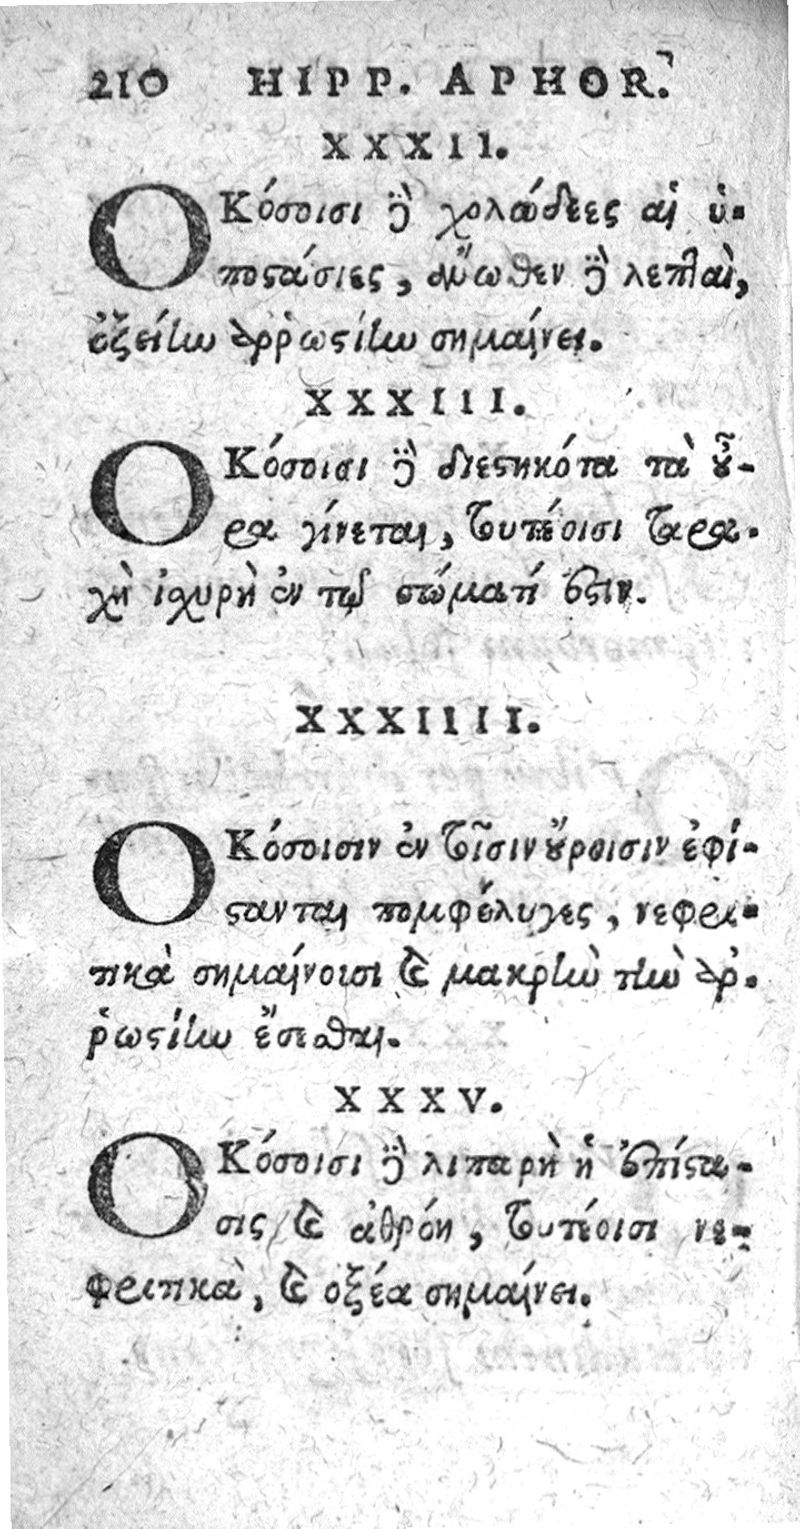 210 HIPP. APHOR.
XXXII.
ΟΚόσοισι δὲ χολώδεες αἱ ὑ-
ποστάσιες, ἄνωθεν δὲ λεπταὶ,
ὀξείην ἀῤῥωστίην σημαίνει.
XXXIII.
ΟΚόσοισι δὲ διεστηκότα τὰ οὖ-
ρα γίνεται, τουτέοισι ταρα-
χὴ ἰχυρὴ ἐν τῷ σώματί ἐστιν.
XXXIIII.
ΟΚόσοισιν ἐν τοῖσιν οὔροισιν ἐφί-
στανται πομφόλυγες, νεφρι-
τικὰ σημαίνοισι καὶ μακρὴν τὴν ἀῤ-
ῥωστίην ἔσεσθαι.
XXXV.
ΟΚόσοισι δὲ λιπαρὴ ἡ ἐπίστα-
σις καὶ ἀθρόη, τουτέοισι νε-
φριτικὰ, καὶ ὀξέα σημαίνει.